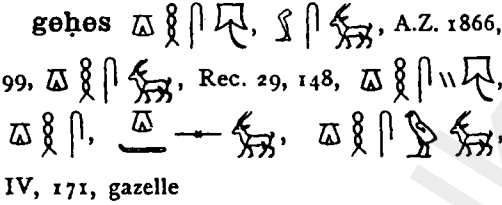 geḥes 𓎼𓎛𓋴𓄛, 𓃀𓋴𓃴, A.Z. 1866,
99, 𓎼𓎛𓋴𓃴, Rec. 29, 148, 𓎼𓎛𓋴𓏭𓄛,
𓎼𓎛𓋴, 𓎼𓊃𓃴, 𓎼𓎛𓋴𓅱𓃴,
IV, 171, gazelle